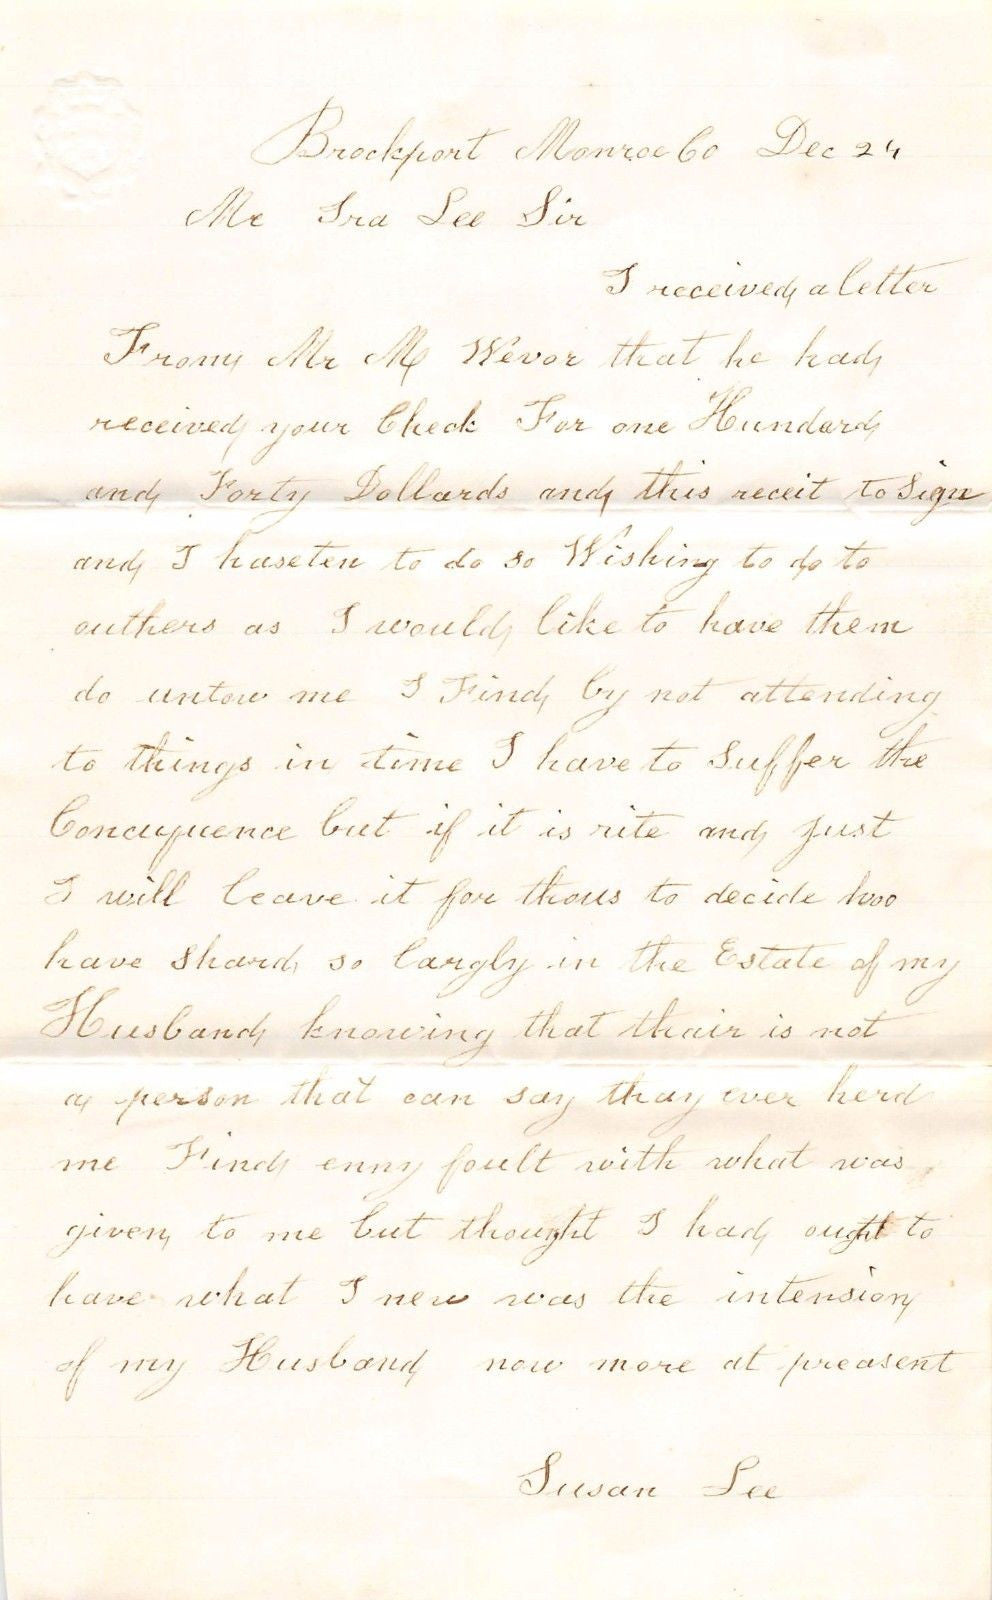 Brockport Monroe Co Dec 24
Mr Ira Lee Sir
I received a letter
From Mr M Wevor that he had
received your Check For one Hunderd
and Forty Dollards and this receit to Sign
and I haseten to do so Wishing to do to
outhers as I would like to have them
do untow me I Find by not attending
to things in time I have to Suffer the
Concuquence but if it is rite and just
I will leave it for thous to decide hoo
have Shard so largly in the Estate of my
Husband knowing that thair is not
a person that can say thay ever herd
me Find enny foult with what was
given to me but thought I had ought to
have what I new was the intension
of my Husband now more at preasent
Susan Lee